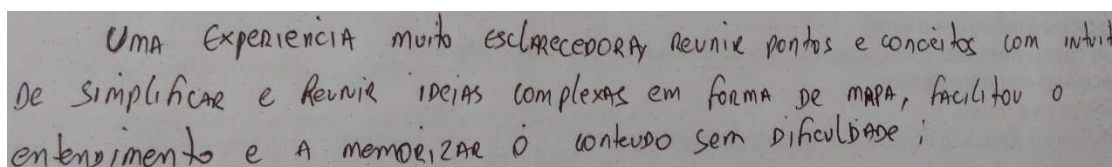 Uma Experiencia muito esclarecedora, Reunir pontos e conceitos com intuit
De simplificar e Reunir ideias complexas em forma de mapa, facilitou o
entendimento e a memorizar o conteudo sem Dificuldade;